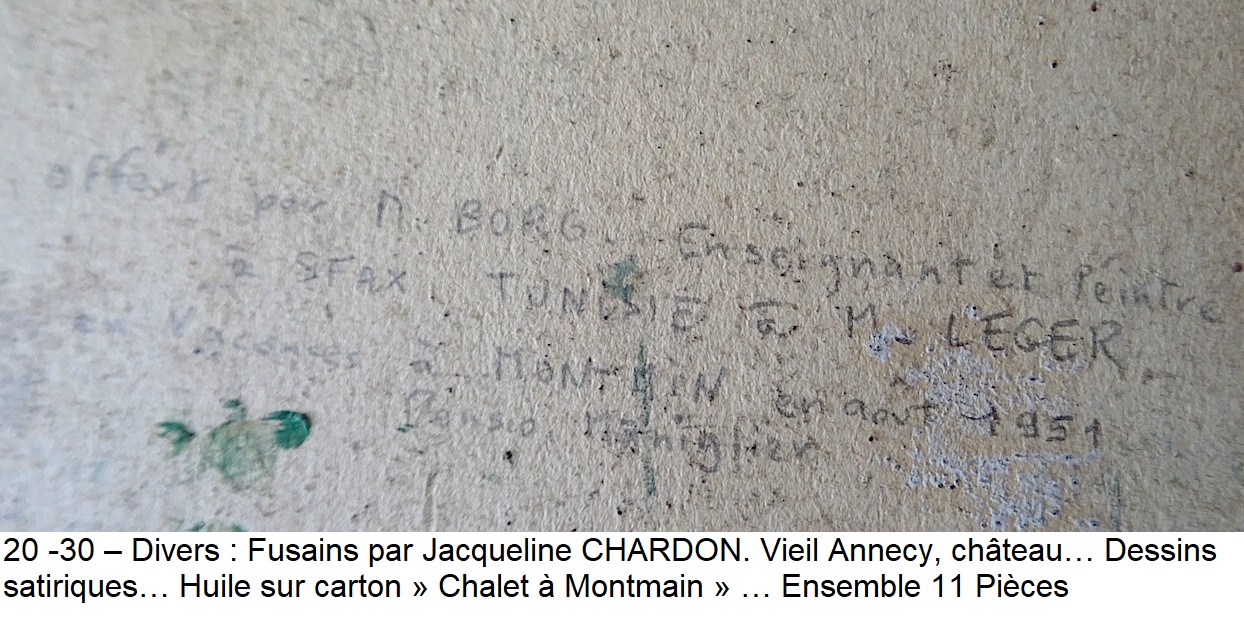 offert par M. BORG. Enseignant et Peintre
à SFAX, TUNISIE à M. LÉGER
en Vacances à MONTMIN en août 1951
Pension Maniglier
20 -30 – Divers : Fusains par Jacqueline CHARDON. Vieil Annecy, château… Dessins
satiriques… Huile sur carton » Chalet à Montmain » … Ensemble 11 Pièces